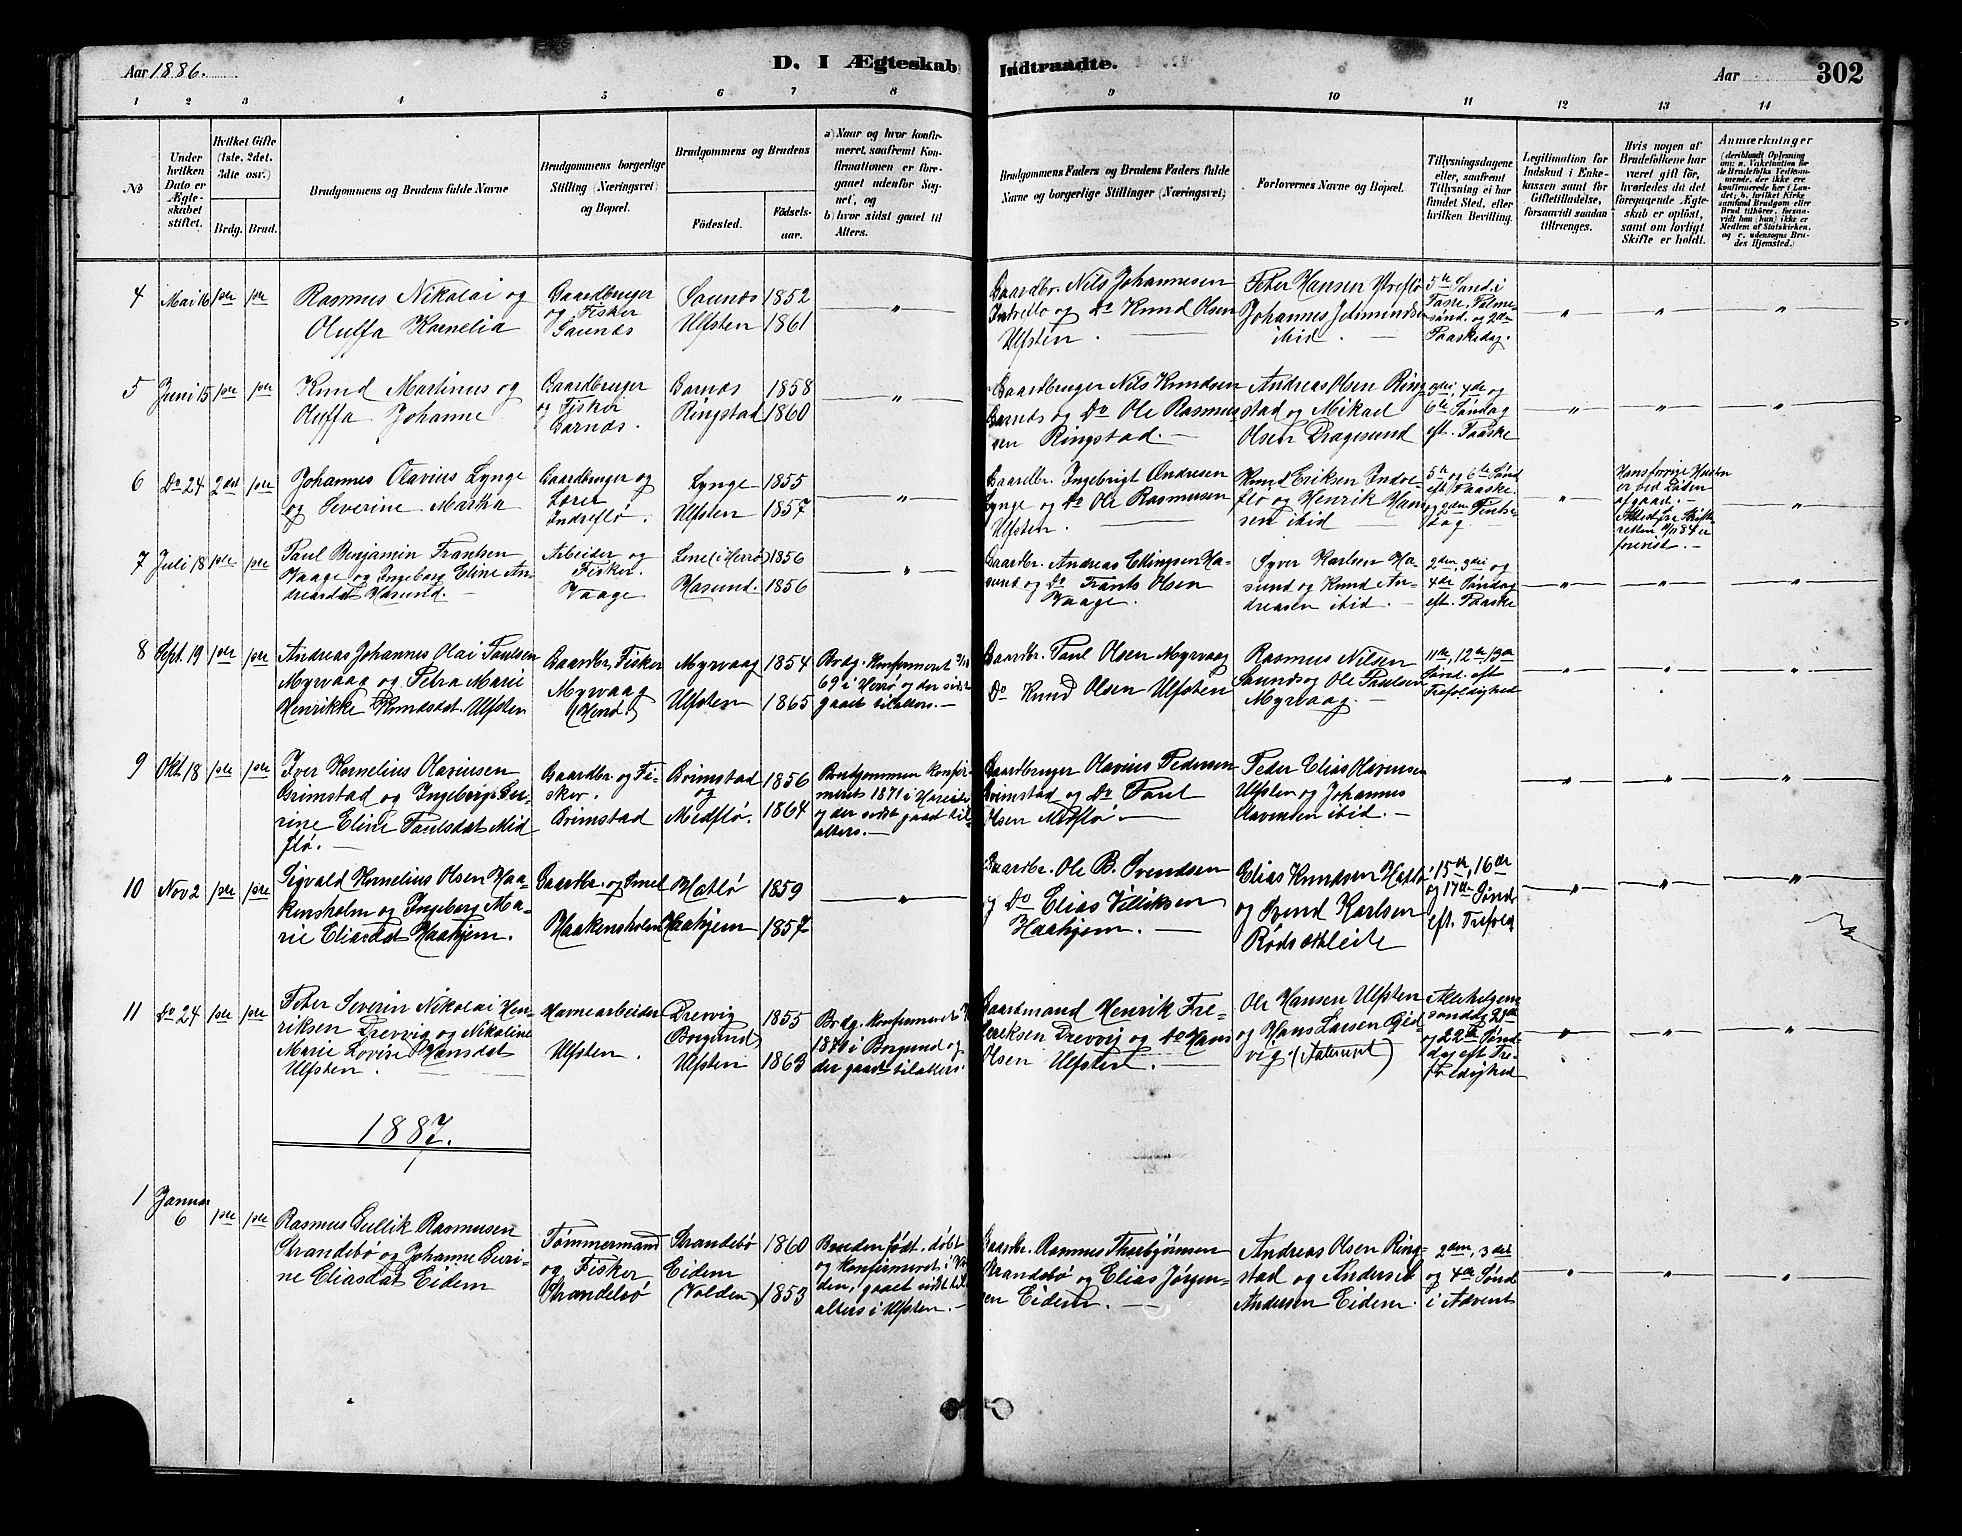 Aar 1886.
D. I Ægteskab Indtraadte.
Aar
302
1 2 3 4 5 6 7 8 9 10 11 12 13 14
No
Under hvilken Dato er Ægteskabet stiftet.
Hvilket Gifte (1ste, 2det, 3die osv.)
Brdg. Brud.
Brudgommens og Brudens fulde Navne
Brudgommens borgerlige Stilling (Næringsvei) og Bopæl.
Brudgommens og Brudens
Födested.
Födselsaar.
a) Naar og hvor konfirmeret, saafremt Konfirmationen er foregaaet udenfor Sognet, og
b) hvor sidst gaaet til Alters.
Brudgommens Faders og Brudens Faders fulde Navne og borgerlige Stillinger (Næringsvei)
Forlovernes Navne og Bopæl.
Tillysningsdagene eller, saafremt Tillysning ei har fundet Sted, efter hvilken Bevilling.
Legitimation for Indskud i Enkekassen samt for Giftetilladelse, forsaavidt saadan tiltrænges.
Hvis nogen af Brudefolkene har været gift før, hvorledes da det foregaaende Ægteskab er opløst, samt om lovligt Skifte er holdt.
Anmærkninger
4 Mai 16 1ste 1ste
Rasmus Nikolai og
Oluffa Kornelia
Gaardbruger
og Fisker
Saunæs
Saunæs 1852
Ulfsten 1861
"
Gaardbr. Nils Johannesen
Indreflø og Do Knud Olsen
Ulfsten.
Peter Hansen Ytreflø
Johannes
ibid.
5te Sønd. i
Faste, Palmesønd. og 2den
Paaskedag.
" " "
5 Juni 15 1ste 1ste
Knud Martinus og
Oluffa Johanne
Gaardbruger
og Fisker
Garnæs.
Garnæs 1858
Ringstad 1860
"
Gaardbruger Nils Knudsen
Garnæs og Do Ole Rasmussen Ringstad.
Andreas Olsen Ringstad og Mikael
Olsen Dragesund
3die, 4de og
6te Søndag
eft. Paaske
" " "
6 Do 24 2det 1ste
Johannes Olavius Lynge
og Severine Martha
Gaardbruger og
Lærer
Indreflø.
Lynge 1855
Ulfsten 1857
"
Gaardbr. Ingebrigt Andresen
Lynge og Do Ole Rasmussen
Ulfsten.
Knud Eriksen Indreflø og Henrik Hansen ibid
5te og 6te Sønd
eft. Paaske
og 2den Pintsedag
"
Hans forrige Hustru
er ved Døden
afgaaet.
forevist.
"
7 Juli 18 1ste 1ste
Paul Benjamin Frantsen
Vaage og Ingeborg Eline Andreasdat Hasund.
Arbeider og
Fisker.
Vaage
(i Herrø) 1856
Hasund. 1856
"
Gaardbr. Andreas Ellingsen Hasund og Do Frants Olsen
Vaage.
Syver Karlsen Hasund og Knud Andreasen ibid.
2den, 3die og
4de Søndag
eft. Paaske
" " "
8 Sept. 19 1ste 1ste
Andreas Johannes Olai Paulsen
Myrvaag og Petra Marie
Henrikke Knudsdat. Ulfsten
Gaardbr. Fisker
Myrvaag
(Herrø)
Myrvaag 1854
Ulfsten 1865
Brdg. Konfirmeret
69 i Herrø og der sidst
gaaet tilalters.
Gaardbr. Paul Olsen Myrvaag
Do Knud Olsen Ulfsten
Rasmus Nilsen
Saunæs og Ole Paulsen
Myrvaag.
11te, 12te 13de
Sønd. eft
Trefoldighed
" " "
9 Okt 18 1ste 1ste
Iver Kornelius Olavinsen
Grimstad og Ingeborg Serine Eline Paulsdat Midflø.
Gaardbr. og Fisker.
Grimstad
Grimstad 1856
og
Medflø. 1864
Brudgommen Konfirmeret 1871 i Hareid
og der sidst gaaet tilalters.
Gaardbruger Olavius Pedersen
Grimstad og Do Paul
Olsen Medflø.
Peder Elias Olavensen
Ulfsten og Johannes
Olavensen ibid.
" " "
10 Nov 2 1ste 1ste
Sigvald Kornelius Olsen Haakensholm og Ingeborg Marie Eliasdat Haahjem.
Gaardbr. og Smed
Haakensholm
Hatlø 1859
Haahjem 1857
"
Gaardbr. Ole B. Svendsen
og Do Elias Villiksen
Haahjem.
Elias Knudsen Hatlø
og Svend Karlsen
Rødsætleite
15de, 16de
og 17de Sønd
eft. Trefold
" " "
11 Do 24 1ste 1ste
Peter Severin Nikolai Henriksen Drevvig og Nikoline
Marie Lovise Hansdat
Ulfsten.
Havnearbeider
Ulfsten.
Drevvig 1855
Borgund
Ulfsten 1863
Brdg. Konfirmeret
i Borgund og
der gaaet tilalters.
Gaardmand Henrik Fredriksen Drevvig og Do Hans
Olsen Ulfsten.
Ole Hansen Ulfsten
og Hans Larsen
(Aalesund)
Allehelgens
søndag
og 22de Søndag eft Trefoldighed
" " "
1887.
1 Januar 6 1ste 1ste
Rasmus Gullik Rasmusen
Strandebø og Johanne Gurine Eliasdat Eidem
Tømmermand
og Fisker
Strandebø
Strandebø 1860
Eidem
(Volden) 1853
Bruden født, døbt
og Konfirmeret i Volden, gaaet sidst tilalters i Ulfsten.
Gaardbr. Rasmus Thorbjørnsen
Strandebø og Elias Jørgensen Eidem.
Andreas Olsen Ringstad og Anders
Andersen Eidem.
2den, 3die
og 4de Sønd
i Advent
" " "